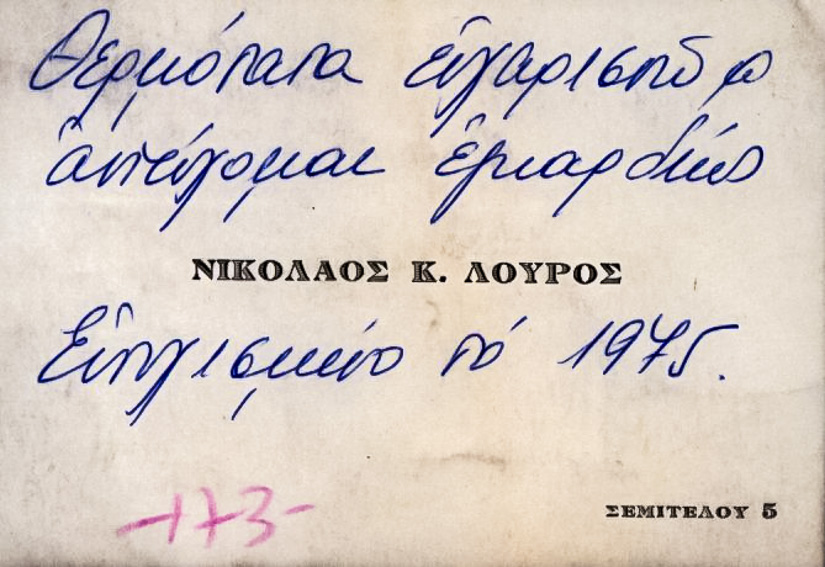 Θερμότατα εὐχαριστῶ
ἀντεύχομαι ἐγκαρδίως
ΝΙΚΟΛΑΟΣ Κ. ΛΟΥΡΟΣ
Εὐτυχισμένο τό 1975.
-173-
ΣΕΜΙΤΕΛΟΥ 5